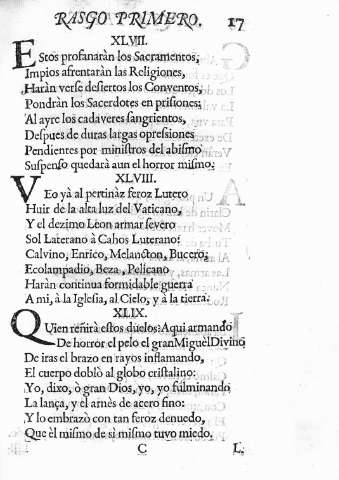 RASGO PRIMERO. 17
XLVII.
Estos profanaràn los Sacramentos,
Impios afrentaràn las Religiones,
Haràn verse desiertos los Conventos,
Pondràn los Sacerdotes en prisiones;
Al ayre los cadaveres sangrientos,
Despues de duras largas opresiones
Pendientes por ministros del abismo
Suspenso quedarà aun el horror mismo.
XLVIII.
Veo yà al pertinàz feroz Lutero
Huir de la alta luz del Vaticano,
Y el dezimo Leon armar severo
Sol Laterano à Cahos Luterano:
Calvino, Enrico, Melancton, Bucero,
Ecolampadio, Beza, Pelicano
Haràn continua formidable guerra
A mi, à la Iglesia, al Cielo, y à la tierra.
XLIX.
Quien reñirà estos duelos? Aqui armando
De horror el pelo el gran Miguèl Divino
De iras el brazo en rayos inflamando,
El cuerpo doblò al globo cristalino:
Yo, dixo, ò gran Dios, yo, yo fulminando
La lança, y el arnès de acero fino:
Y lo embrazò con tan feroz denuedo,
Que èl mismo de sì mismo tuvo miedo.
C L.